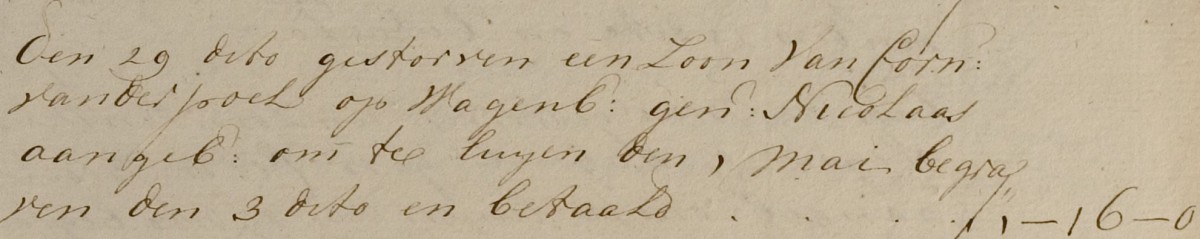 Den 29 dito gestorven een Zoon van Corn:
vander poel op Wagenb: gen: Nicolaas
aangeb: om te luyen den 1 Mai begra
ven den 3 dito en betaald . . . . 1-16-0